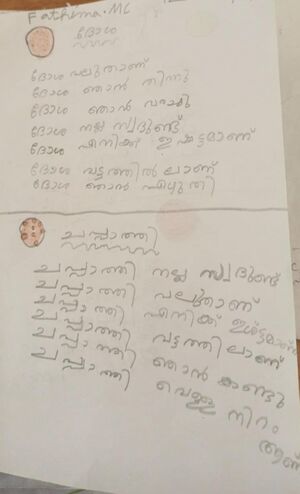 Fathima.MC
ദോശ
ദോശ പലുതാണ്
ദോശ ഞാൻ തിന്നു
ദോശ ഞാൻ
ദോശ നല്ല സ്വദുണ്ട്
ദോശ എനിക്ക് ഇഷ്ടമാണ്
ദോശ വട്ടത്തിൽ ലാണ്
ദോശ ഞാൻ എഴുതി
ചപ്പാത്തി
ചപ്പാത്തി നല്ല സ്വദുണ്ട്
ചപ്പാത്തി പലുതാണ്
ചപ്പാത്തി എനിക്ക് ഇഷ്ടമാണ്
ചപ്പാത്തി വട്ടത്തി ലാണ്
ചപ്പാത്തി ഞാൻ കണ്ടു
ചപ്പാത്തി വെള്ള നിറം
ആണ്